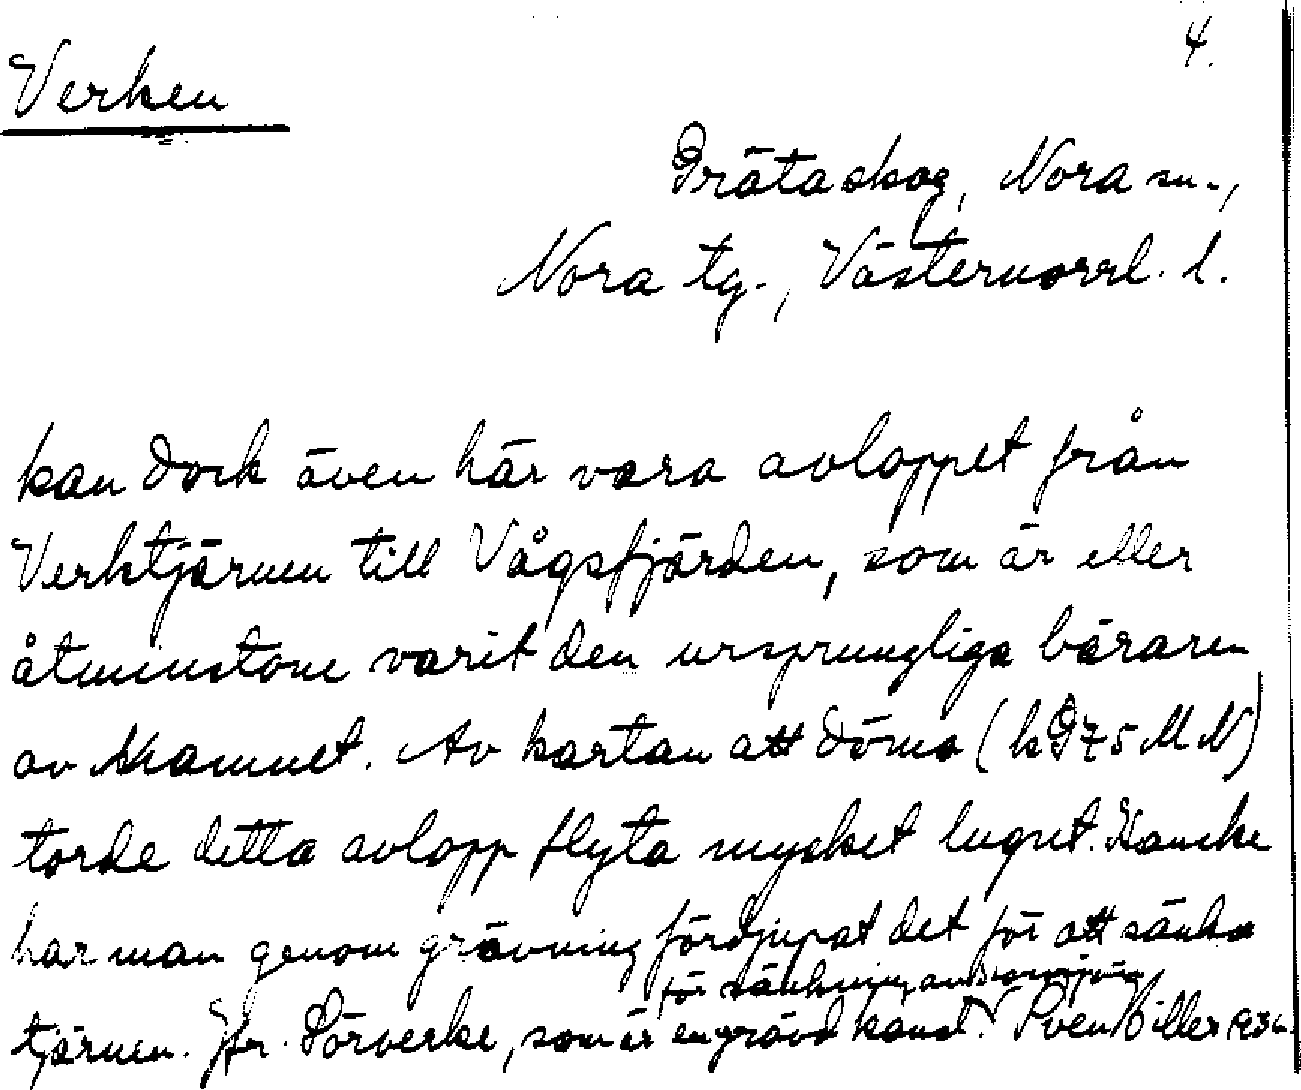 4.
Verken
Prästaskog, Nora sn.,
Nora tg., Västernorrl. l.
kan dock även här vara avloppet från
Verktjärnen till Vågsfjärden, som är eller
åtminstone varit den ursprungliga bäraren
av namnet. Av kartan att döma (k
torde detta avlopp flyta mycket lugnt. Kanske
har man genom grävning fördjupat det för att sänka
för sänkning av
tjärnen. Jfr. Sörverke, som är en grävd kanal. Sven